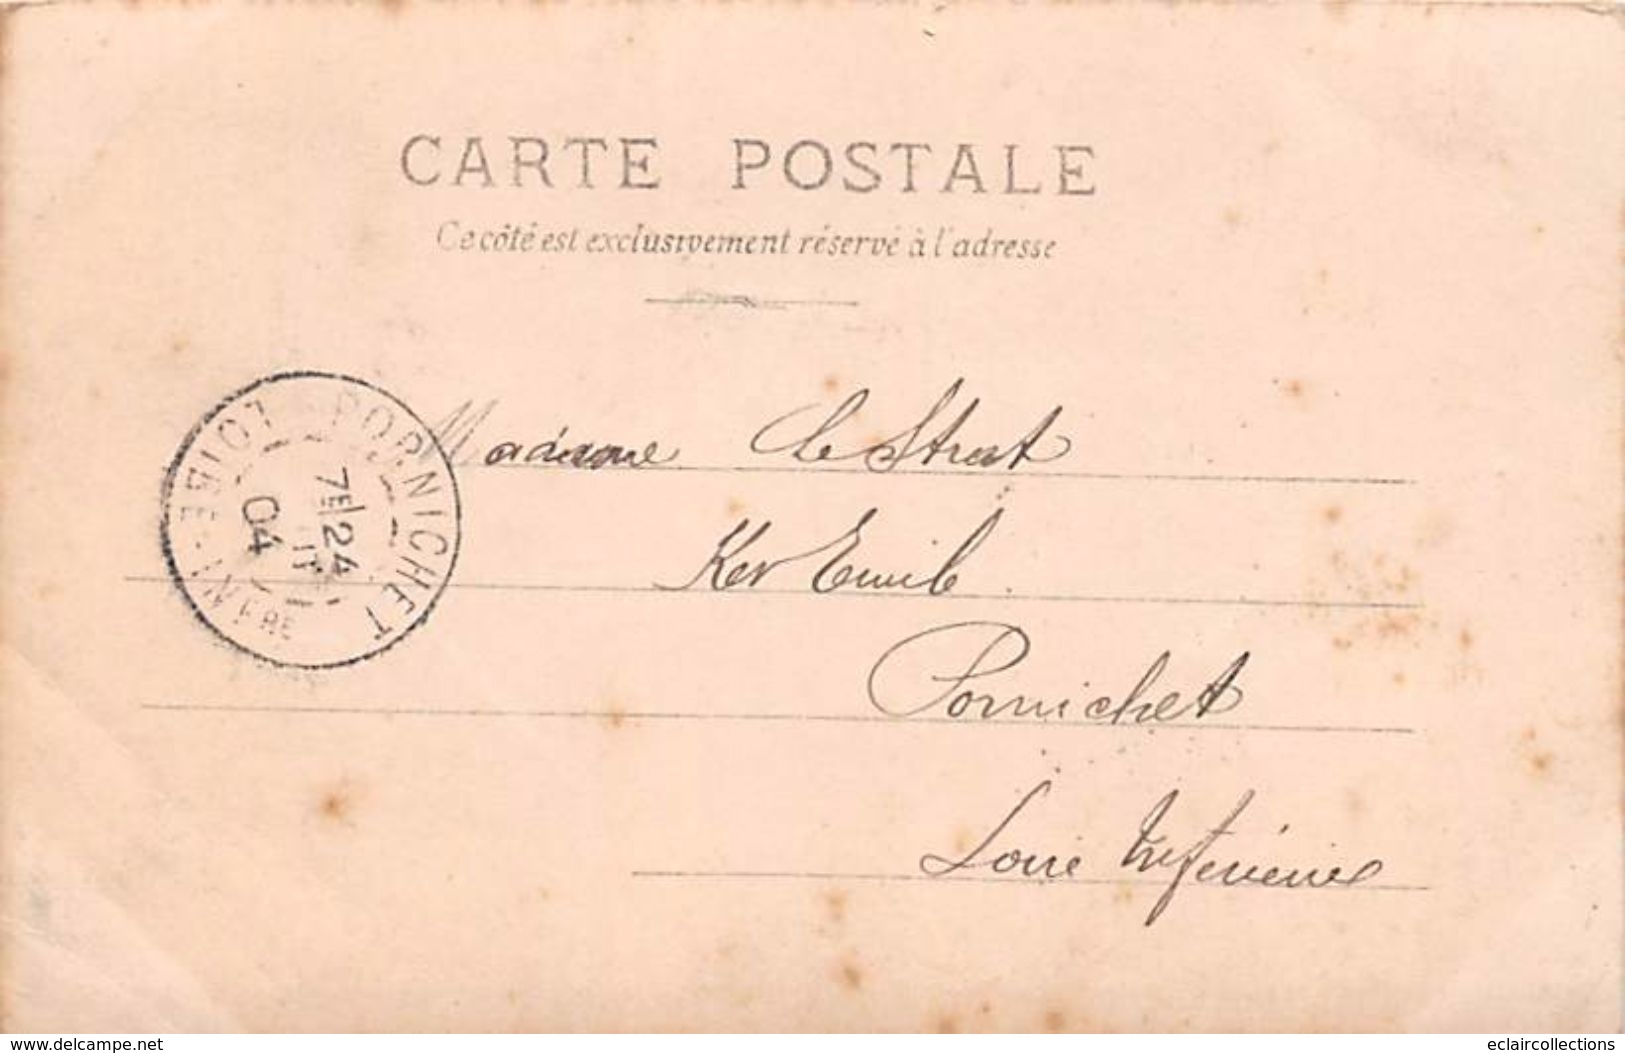 CARTE POSTALE
Ce côté est exclusivement réservé à l'adresse
PORNICHET
LOIRE-INFRE
7E 24
04
Madame Le Strat
Ker Emile
Pornichet
Loire Inférieure
www.delcampe.net
eclaircollections